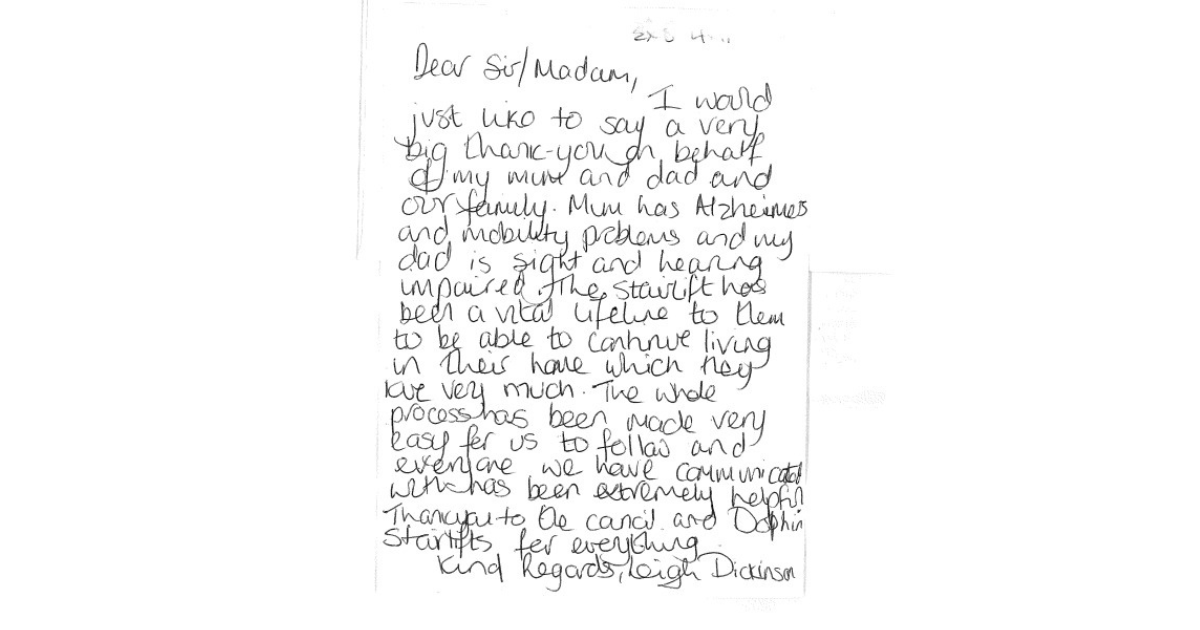 Dear Sir/Madam,
I would
just like to say a very
big thank-you on behalf
of my mum and dad and
our family. Mum has Alzheimers
and mobility problems and my
dad is sight and hearing
impaired. The Stairlift has
been a vital lifeline to them
to be able to continue living
in their home which they
love very much. The whole
process has been made very
easy for us to follow and
everyone we have communicated
with has been extremely helpful
Thankyou to the council and Dolphin
Stairlifts for everything
Kind Regards, Leigh Dickinson